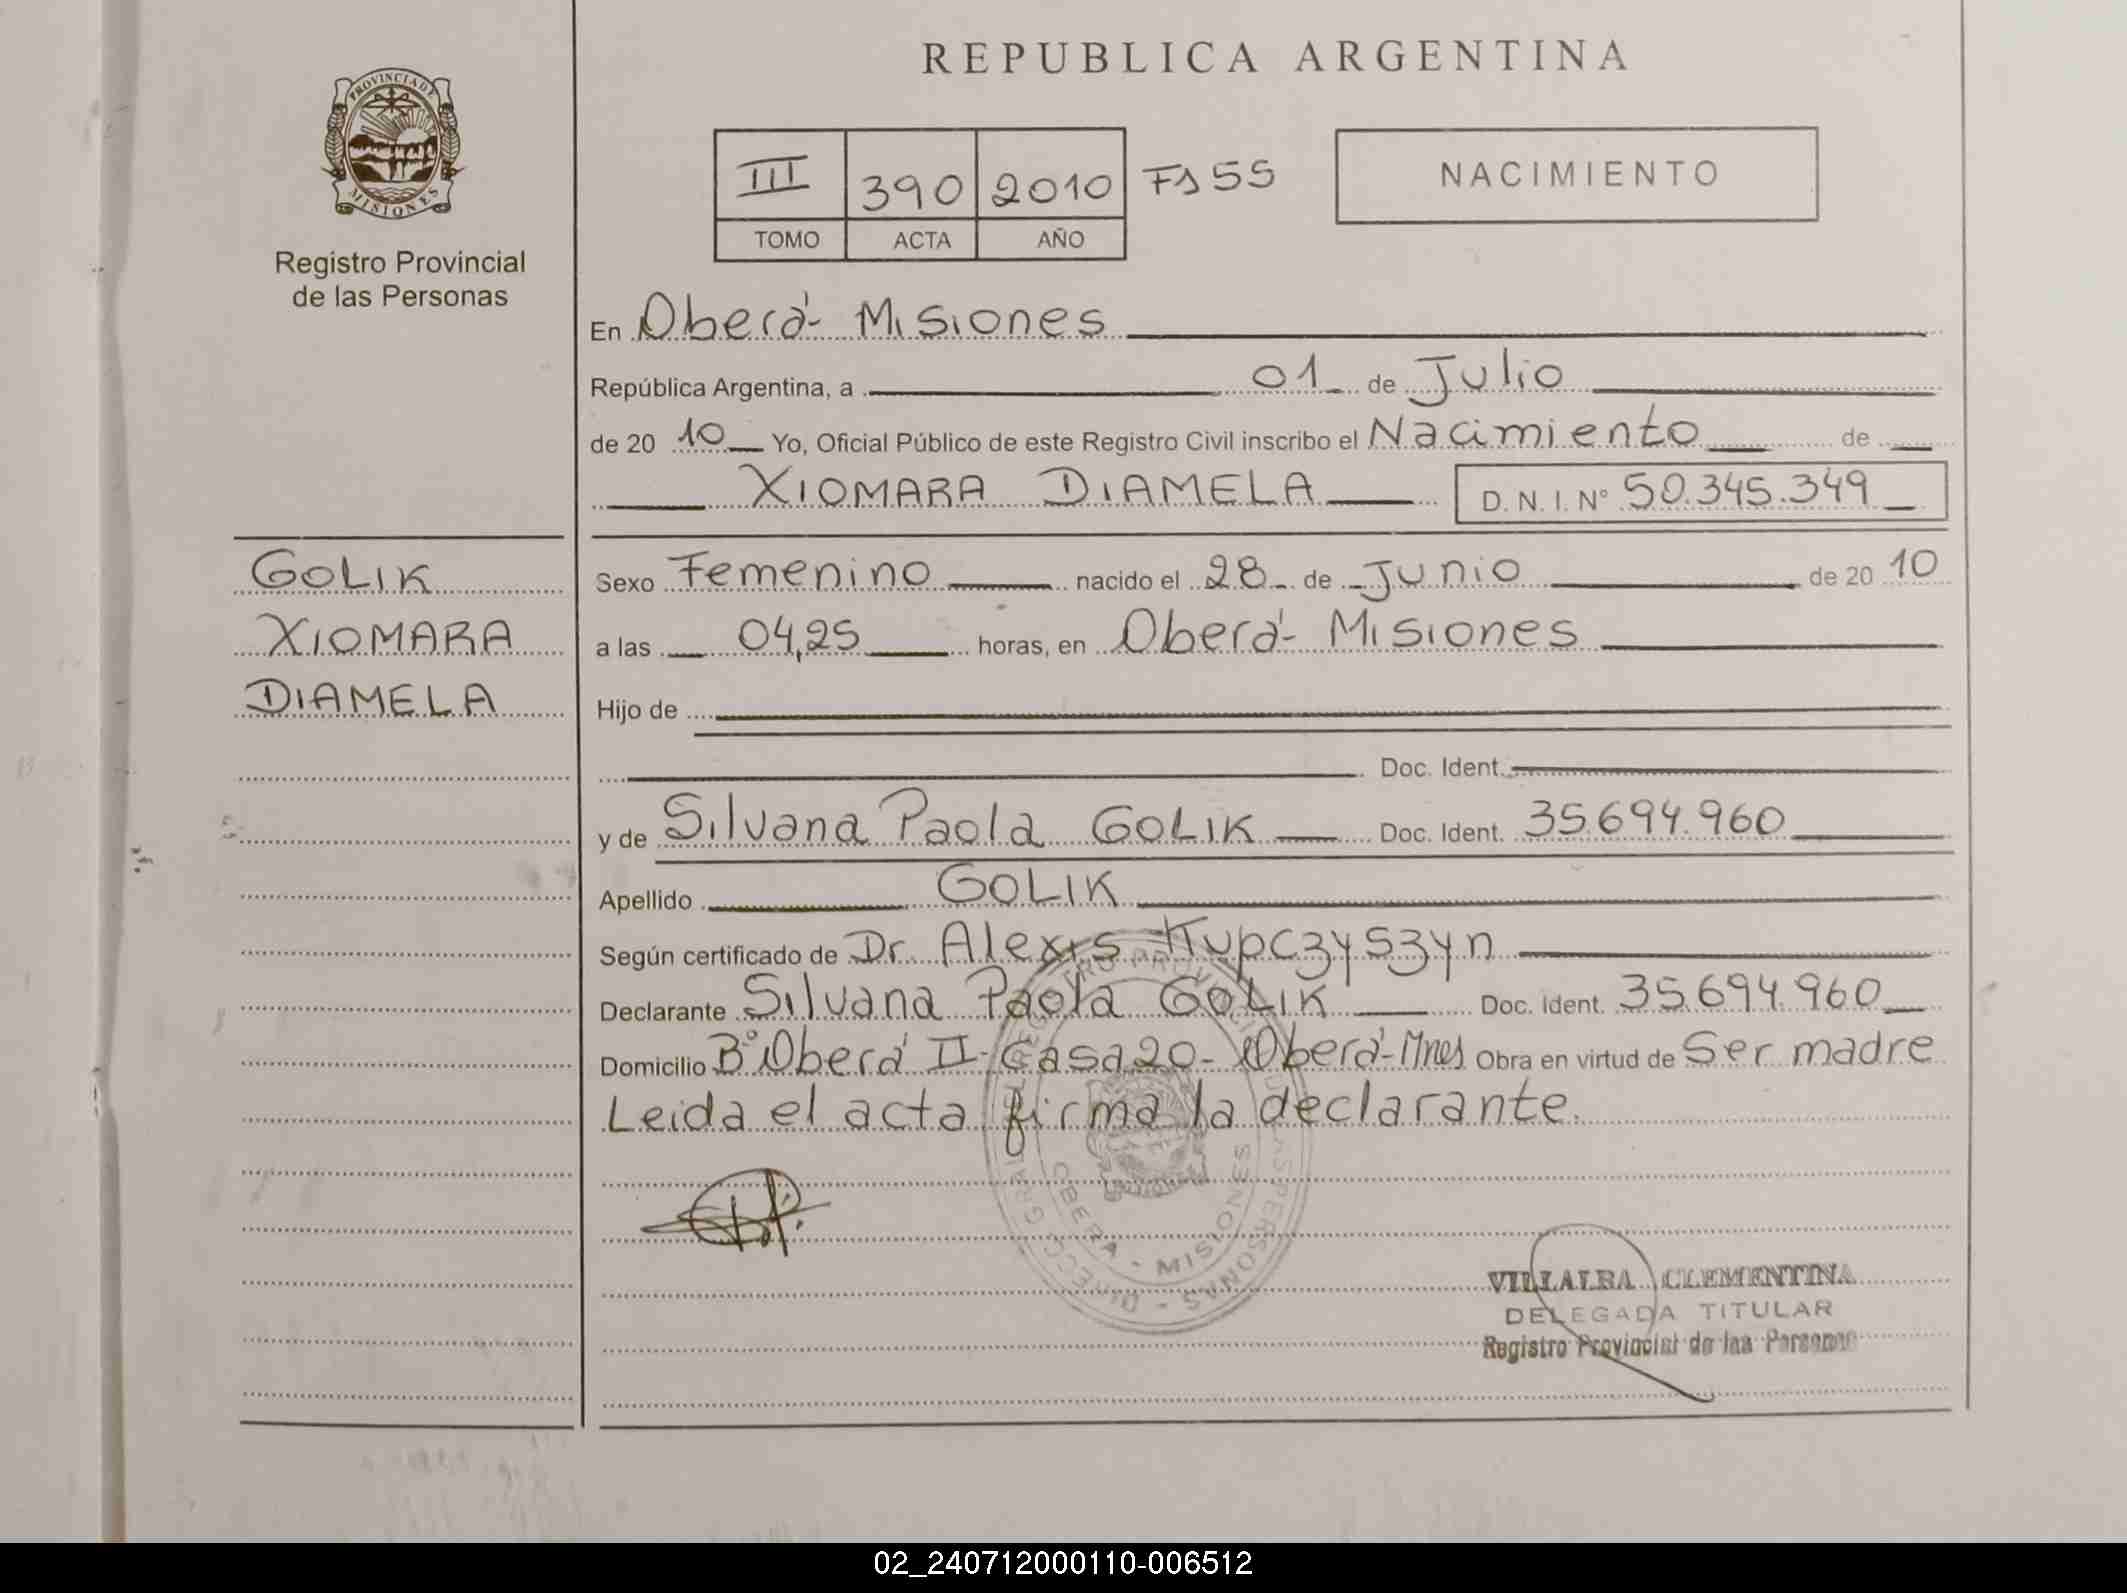 REPUBLICA ARGENTINA
PROVINCIA DE MISIONES
Registro Provincial
de las Personas
III 390 2010 Fs 55
TOMO ACTA AÑO
NACIMIENTO
En Oberá - Misiones
República Argentina, a 01 de Julio
de 20 10 Yo, Oficial Público de este Registro Civil inscribo el Nacimiento de
XIOMARA DIAMELA D. N. I. Nº 50.345.349
GOLIK
XIOMARA
DIAMELA
Sexo Femenino nacido el 28 de Junio de 20 10
a las 04,25 horas, en Oberá - Misiones
Hijo de
Doc. Ident.
y de Silvana Paola GOLIK Doc. Ident. 35.694.960
Apellido GOLIK
Según certificado de Dr. Alexis Kupczyszyn
Declarante Silvana Paola GOLIK Doc. Ident. 35.694.960
Domicilio Bº Oberá II - Casa 20 - Oberá - Mnes Obra en virtud de Ser madre
Leida el acta firma la declarante.
OBERA - MISIONES
VILLALBA CLEMENTINA
DELEGADA TITULAR
Registro Provincial de las Personas
02_240712000110-006512